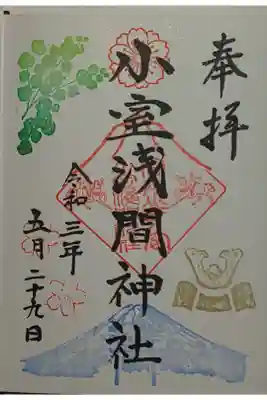 奉拝
小室浅間神社
令和三年
五月二十九日